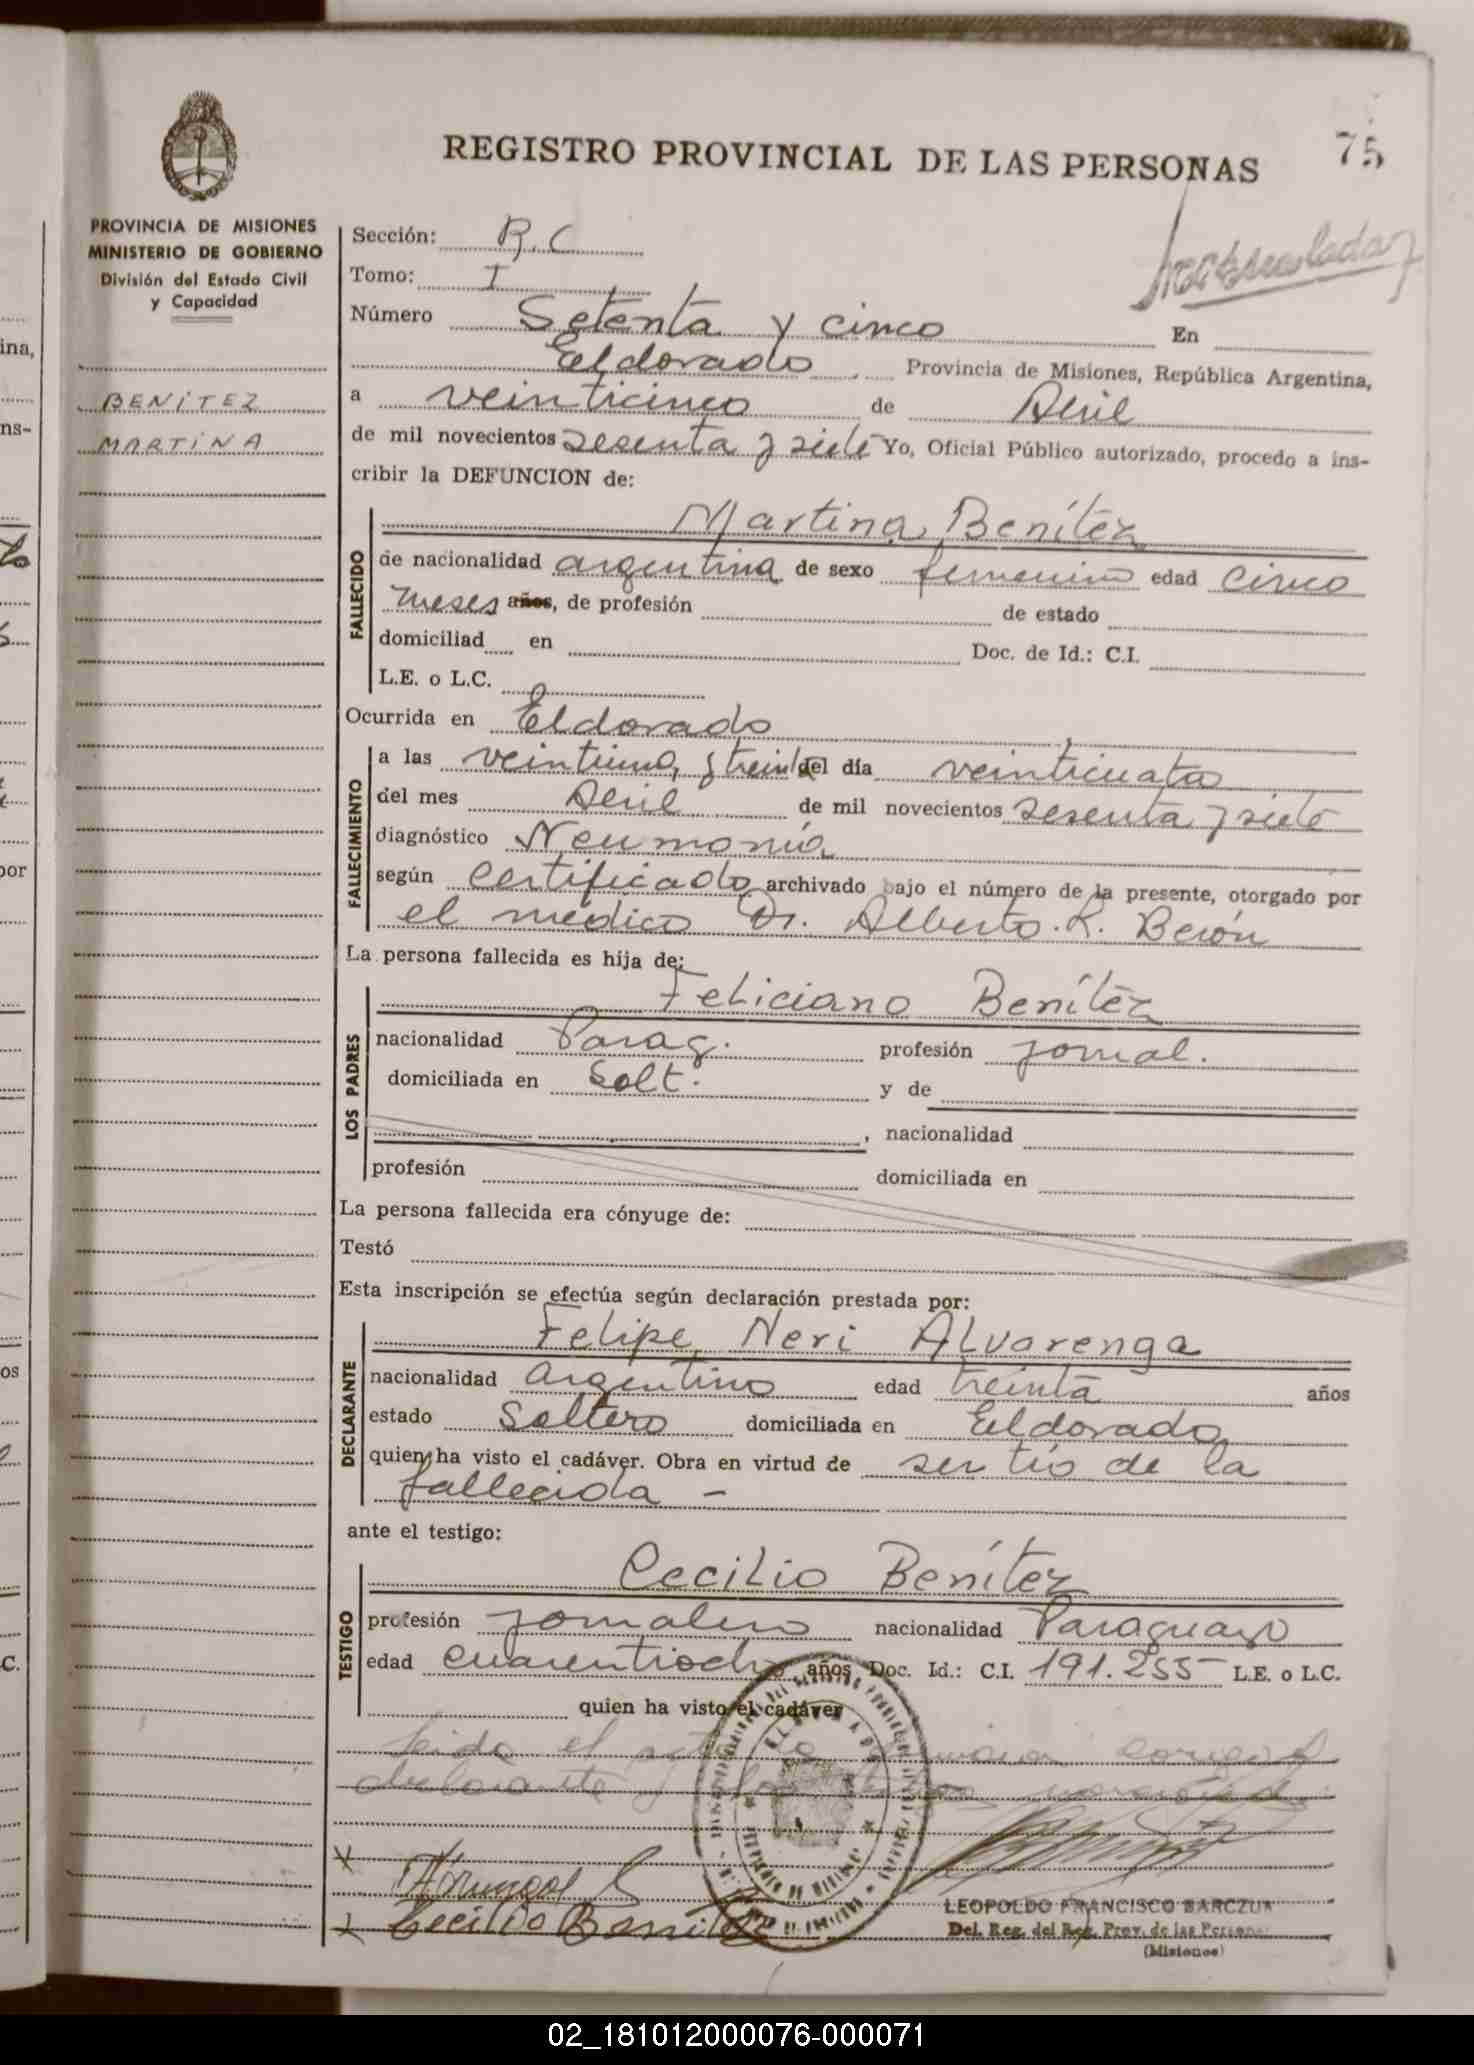 REGISTRO PROVINCIAL DE LAS PERSONAS
75
PROVINCIA DE MISIONES
MINISTERIO DE GOBIERNO
División del Estado Civil
y Capacidad
BENITEZ
MARTINA
Sección: R.C
Tomo: I
Número Setenta y cinco En
Eldorado Provincia de Misiones, República Argentina,
a veinticinco de Abril
de mil novecientos sesenta y siete Yo, Oficial Público autorizado, procedo a ins-
cribir la DEFUNCION de:
FALLECIDO
Martina Benítez
de nacionalidad argentina de sexo femenino edad cinco
meses años, de profesión de estado
domiciliad en Doc. de Id.: C.I.
L.E. o L.C.
Ocurrida en Eldorado
FALLECIMIENTO
a las veintiuno, y treinta del día veinticuatro
del mes Abril de mil novecientos sesenta y siete
diagnóstico Neumonía
según certificado archivado bajo el número de la presente, otorgado por
el médico Dr. Alberto. R. Berón
La persona fallecida es hija de:
LOS PADRES
Feliciano Benítez
nacionalidad Parag. profesión jornal.
domiciliada en Solt. y de
, nacionalidad
profesión domiciliada en
La persona fallecida era cónyuge de:
Testó
Esta inscripción se efectúa según declaración prestada por:
DECLARANTE
Felipe Neri Alvarenga
nacionalidad argentino edad treinta años
estado Soltero domiciliada en Eldorado
quien ha visto el cadáver. Obra en virtud de ser tío de la
fallecida -
ante el testigo:
TESTIGO
Cecilio Benítez
profesión jornalero nacionalidad Paraguayo
edad cuarentiocho años Doc. Id.: C.I. 191.255 L.E. o L.C.
quien ha visto el cadáver
Leida el acta
declarante y
Cecilio Benitez
LEOPOLDO FRANCISCO BARCZUK
Del. Reg. del Reg. Prov. de las Personas
(Misiones)
02_181012000076-000071